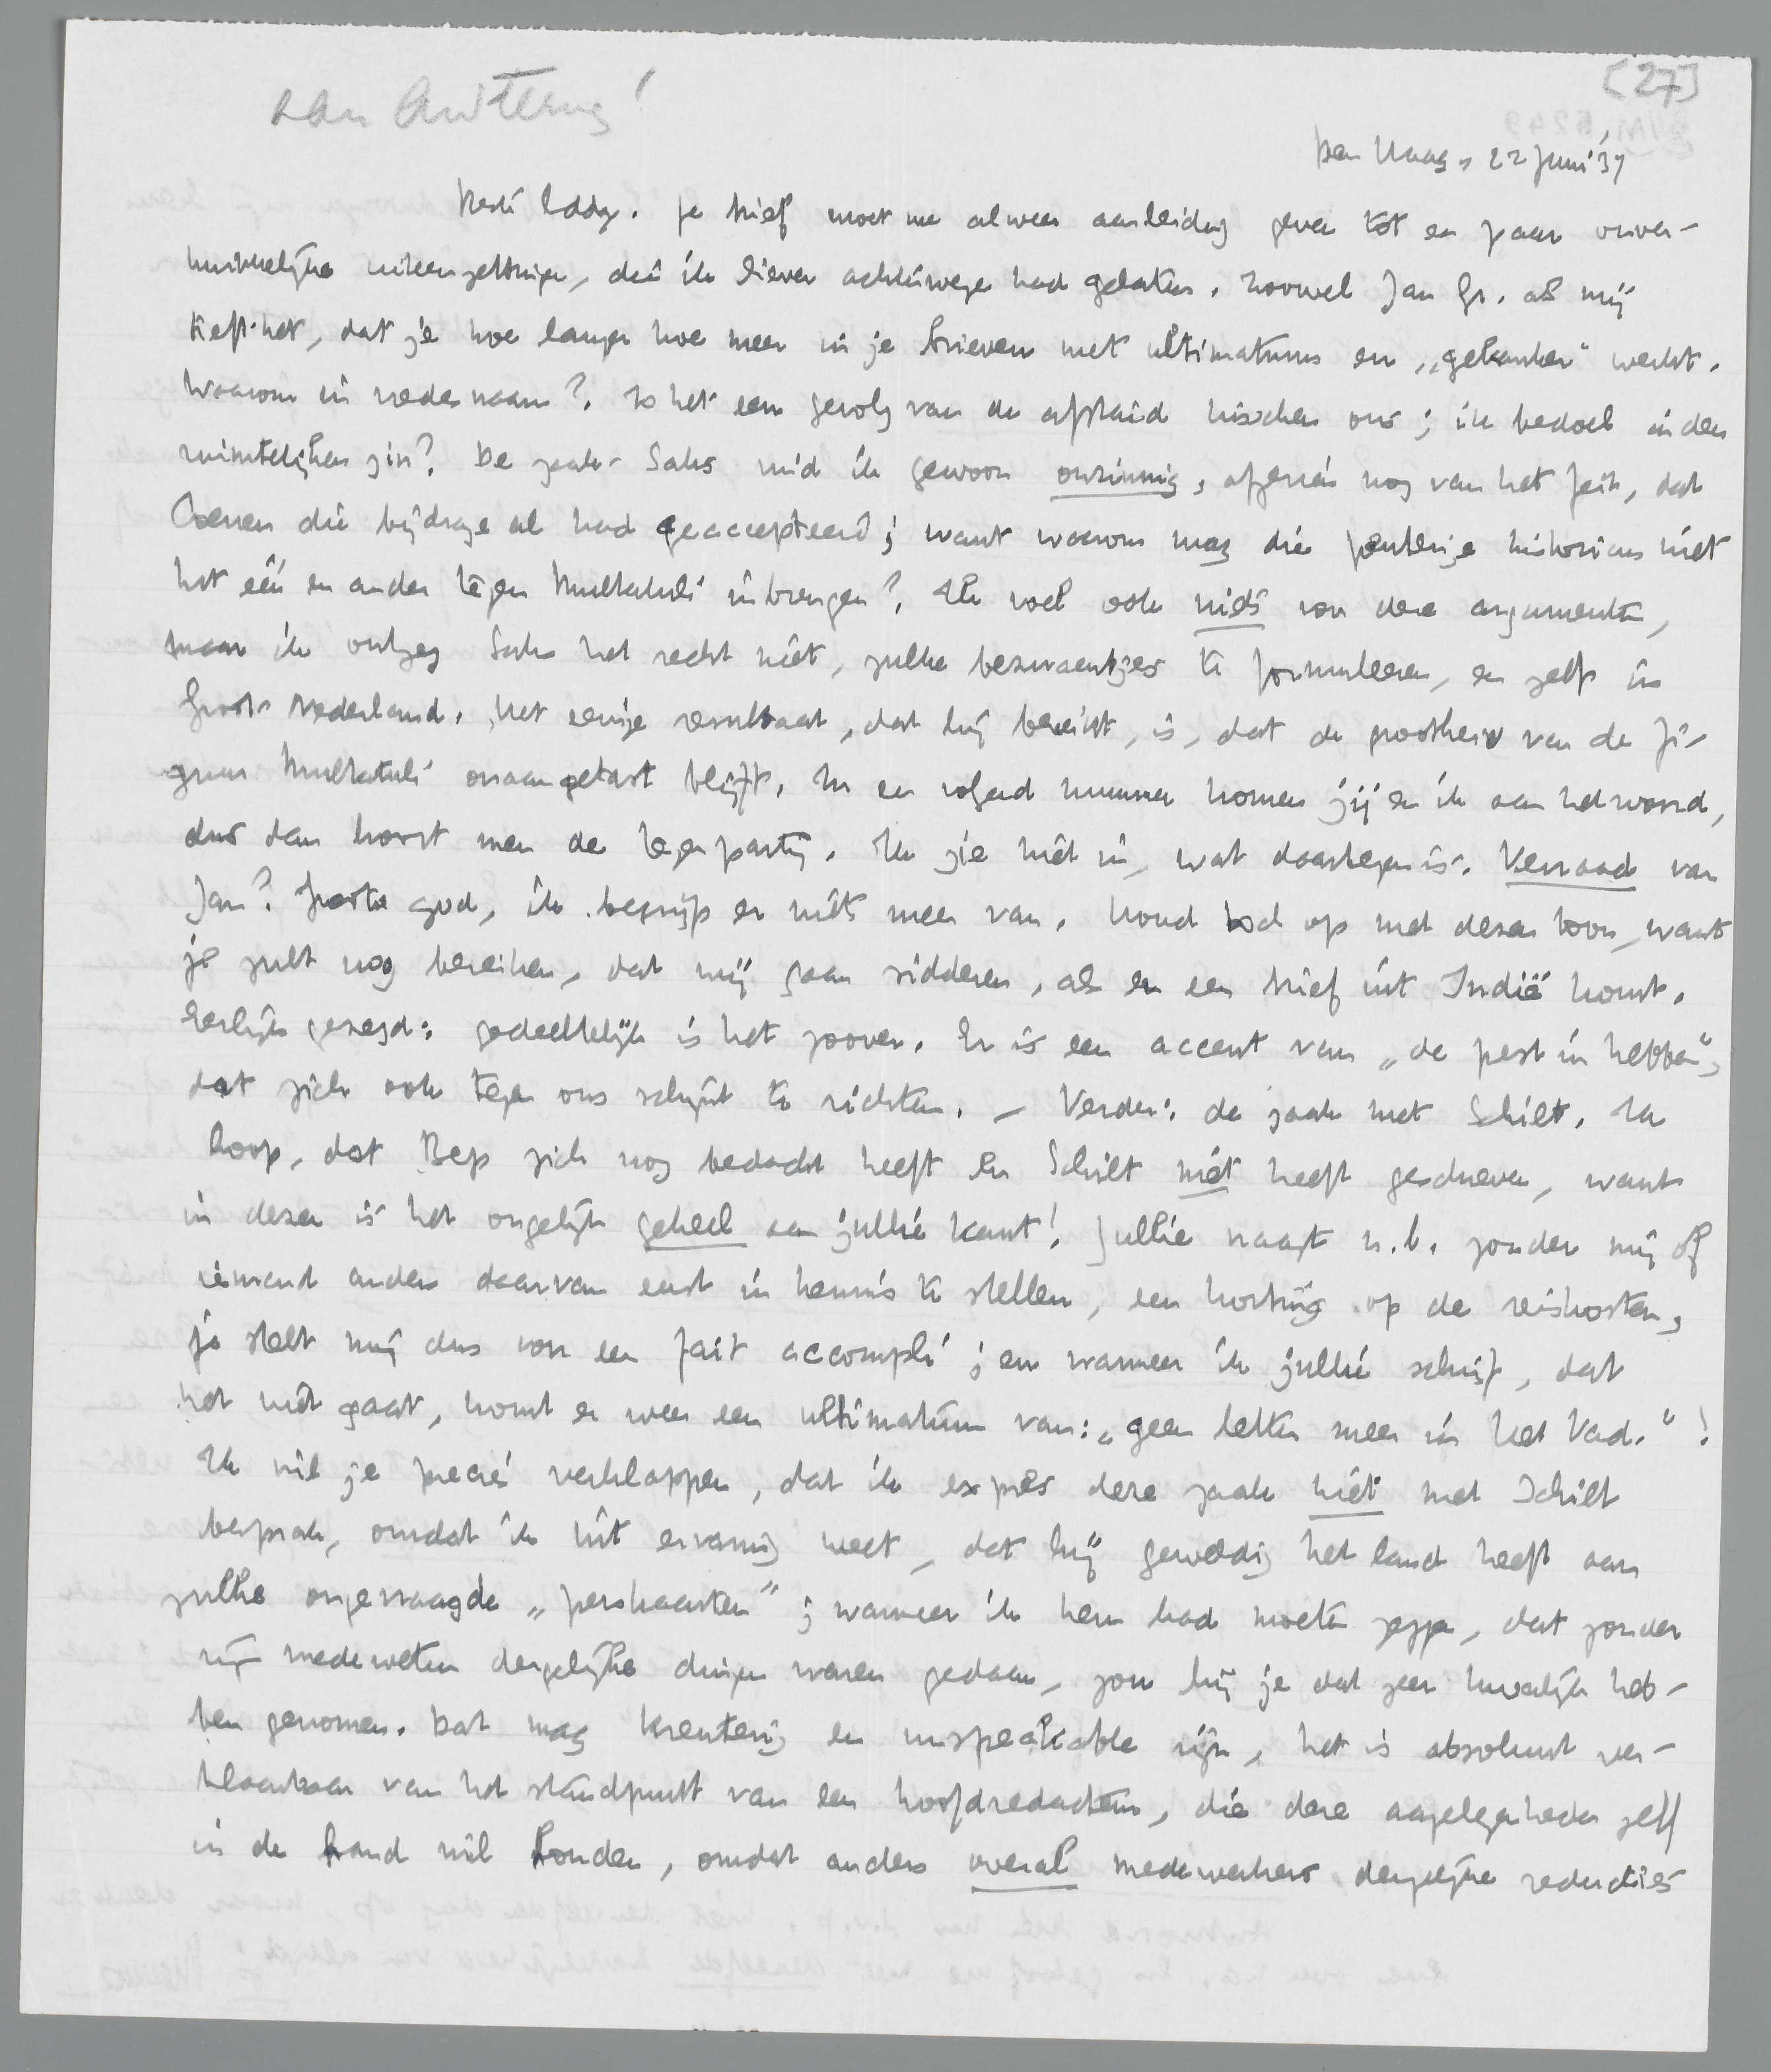 [27]
aan
Den Haag, 22 Juni '37
Beste Eddy. Je brief moet me alweer aanleiding geven tot een paar onver-
kwikkelijke uiteenzettingen, die ik liever achterwege had gelaten. Zoowel Jan Gr. als mij
treft het, dat je hoe langer hoe meer in je brieven met ultimatums en „gekanker" werkt.
Waarom in vredesnaam? Is het een gevolg van de afstand tusschen ons; ik bedoel in den
ruimtelijken zin? De zaak-Saks vind ik gewoon onzinnig, afgezien nog van het feit, dat
Coenen die bijdrage al had geaccepteerd; want waarom mag die peuterige historicus niet
het één en ander tegen Multatuli inbrengen? Ik voel ook niets voor deze argumenten,
maar ik ontzeg Saks het recht niet, zulke bezwaartjes te formuleeren, en zelfs in
Groot-Nederland. Het eenige resultaat, dat hij bereikt, is, dat de grootheid van de fi-
guur Multatuli onaangetast blijft. In een volgend nummer komen jij en ik aan het woord,
dus dan hoort men de tegenpartij. Ik zie niet in, wat daartegen is. Verraad van
Jan? Groote god, ik begrijp er niets meer van. Houd toch op met dezen toon, want
je zult nog bereiken, dat wij gaan sidderen, als er een brief uit Indië komt.
Eerlijk gezegd: gedeeltelijk is het zoover. Er is een accent van „de pest in hebben",
dat zich ook tegen ons schijnt te richten. – Verder: de zaak met Schilt. Ik
hoop, dat Bep zich nog bedacht heeft en Schilt niet heeft geschreven, want
in dezen is het ongelijk geheel aan jullie kant! Jullie vraagt n.b. zonder mij of
iemand anders daarvan eerst in kennis te stellen, een korting op de reiskosten,
je stelt mij dus voor een fait accompli; en wanneer ik jullie schrijf, dat
het niet gaat, komt er weer een ultimatum van: „geen letter meer in het Vad."!
Ik wil je precies verklappen, dat ik expres deze zaak niet met Schilt
besprak, omdat ik uit ervaring weet, dat hij geweldig het land heeft aan
zulke ongevraagde „perskaarten"; wanneer ik hem had moeten zeggen, dat zonder
mijn medeweten dergelijke dingen waren gedaan, zou hij je dat zeer kwalijk heb-
ben genomen. Dat mag krenterig en unspeakable zijn, het is absoluut ver-
klaarbaar van het standpunt van een hoofdredacteur, die deze aangelegenheden zelf
in de hand wil houden, omdat anders overal medewerkers dergelijke reducties